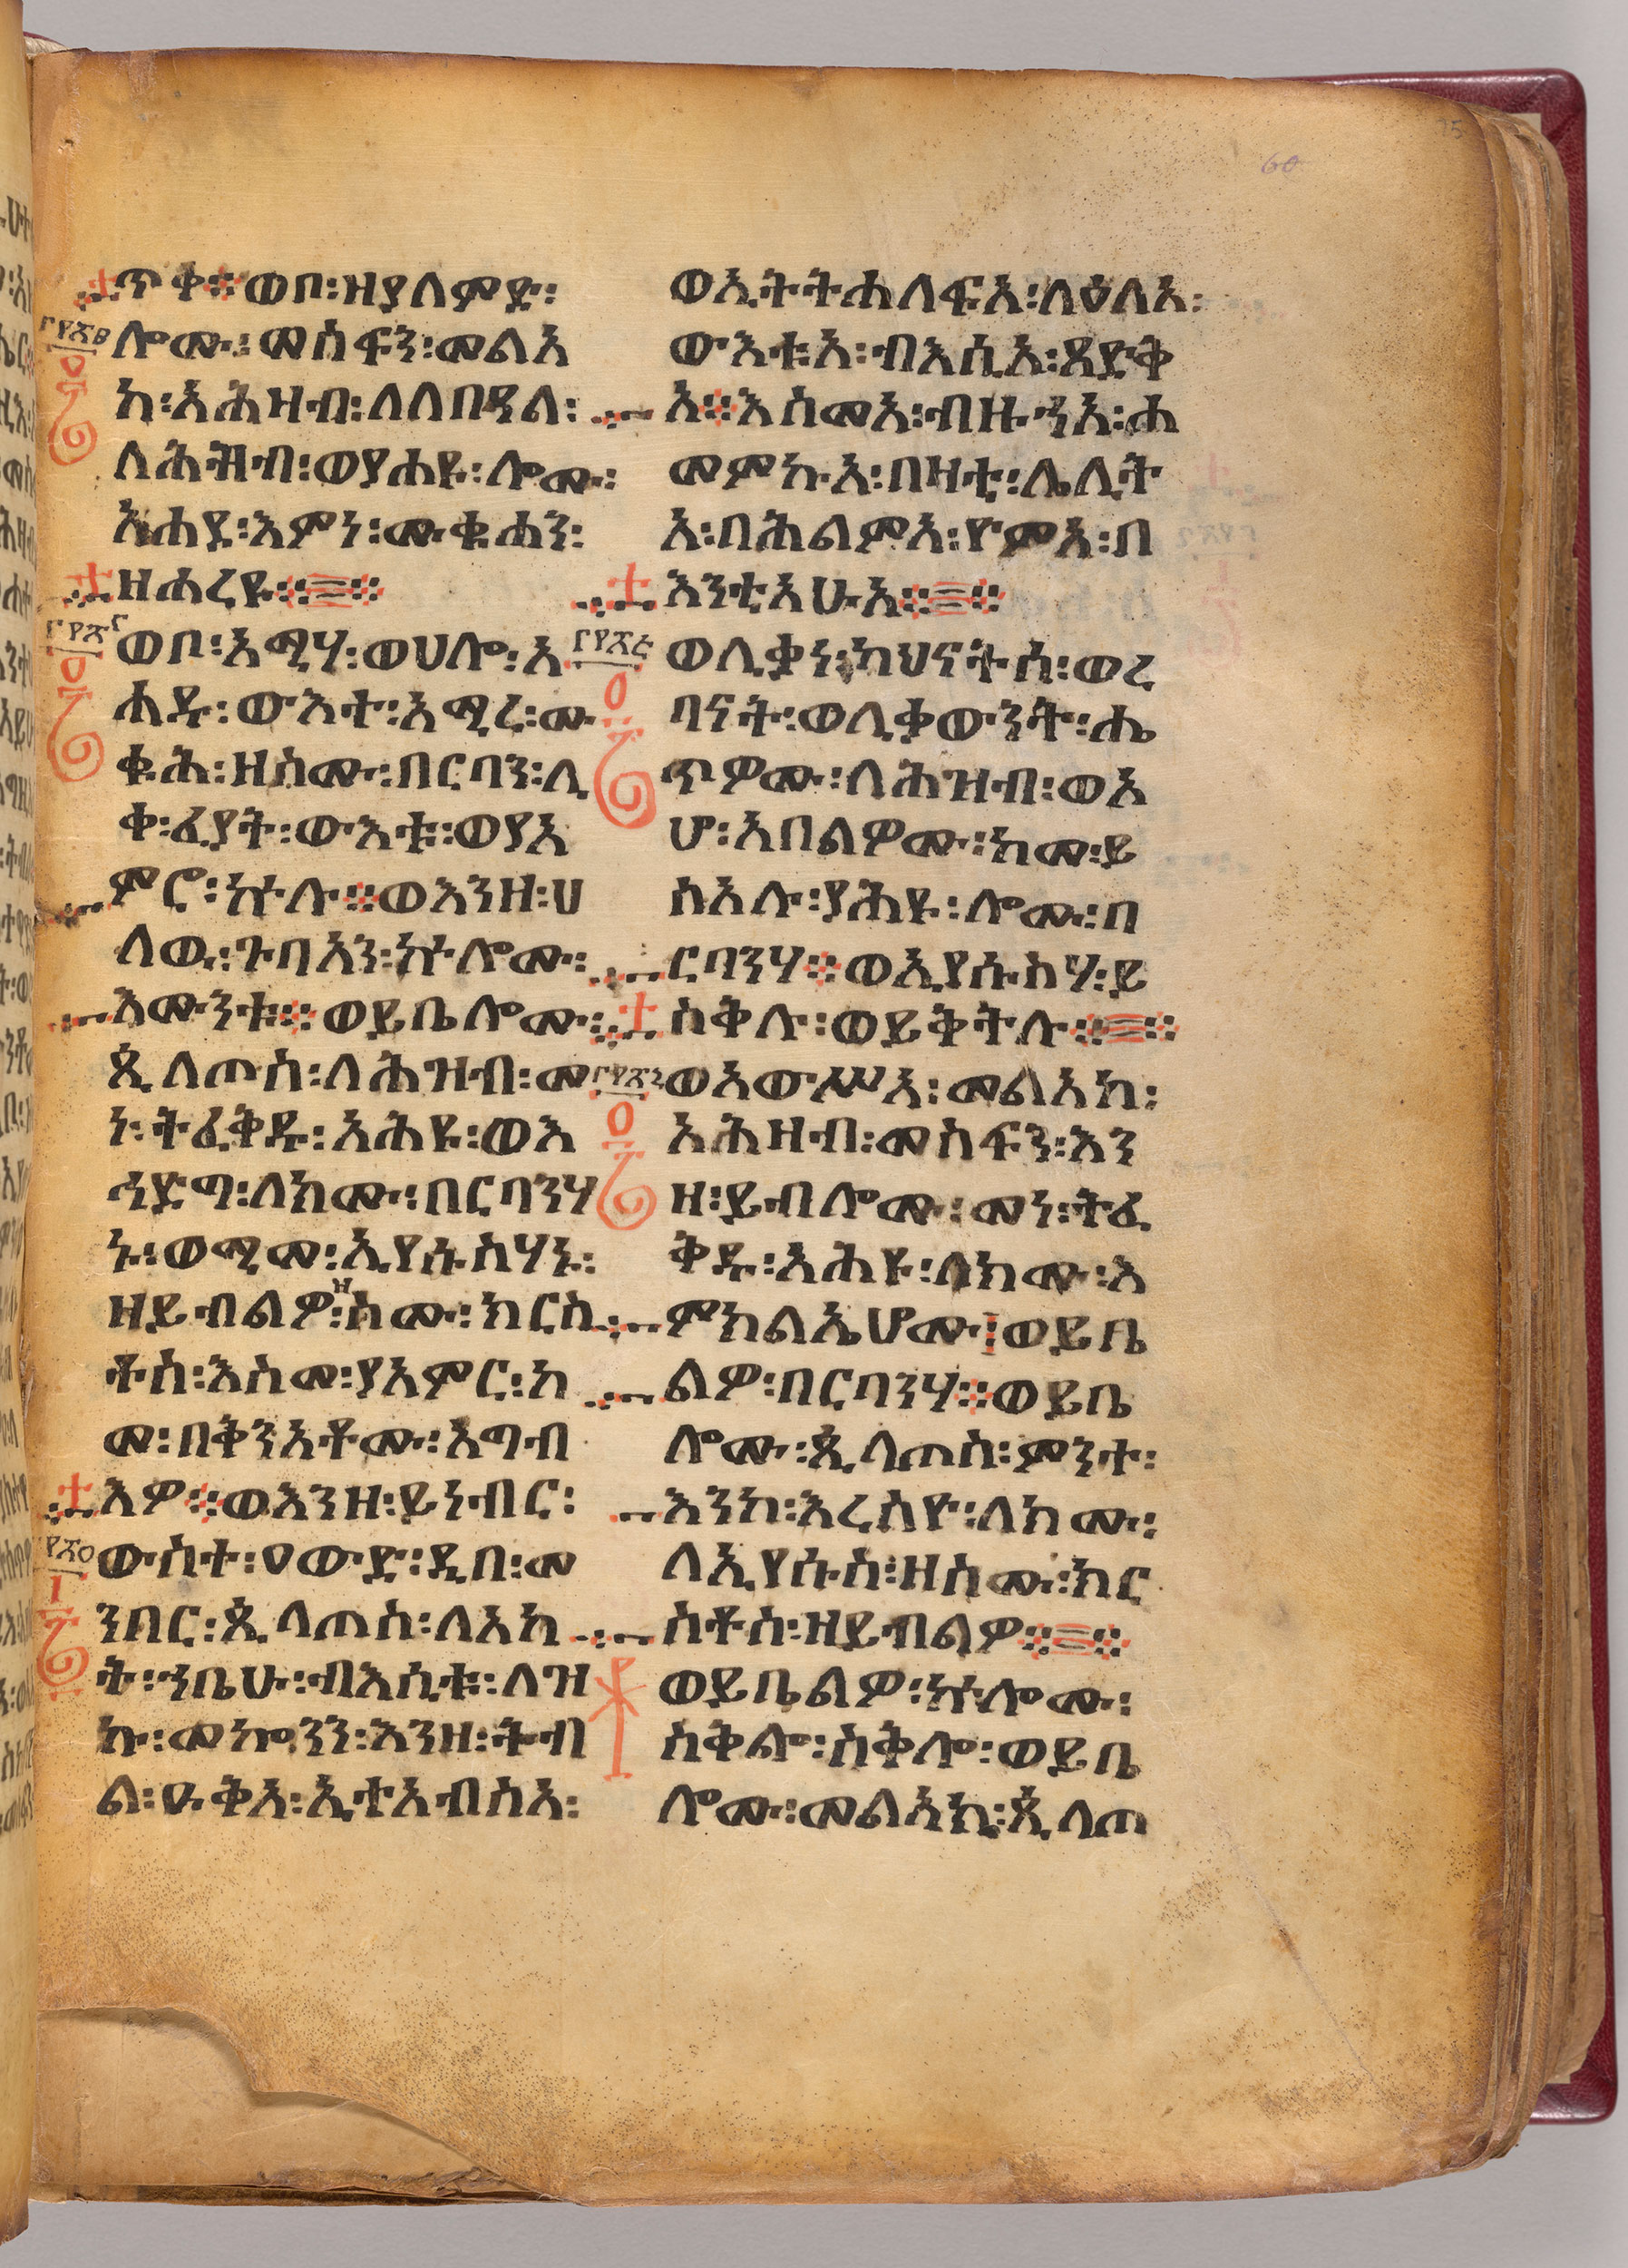 ጥቀ፨ወቦ፡ዘያለምድ፡
ሎሙ፡መስፍን፡መልአ
ከ፡አሕዛብ፡ለለበዓል፡
ለሕዝብ፡ወያሐዩ፡ሎሙ፡
አሐደ፡እምነ፡ሙቁሐን፡
ዘሐረዩ፨፨
ወቦ፡አሜሃ፡ወሀሎ፡አ
ሐዱ፡ውእተ፡አሚረ፡ሙ
ቁሕ፡ዘስሙ፡በርባን፡ሊ
ቀ፡ፈያት፡ውእቱ፡ወያአ
ምሮ፡ኵሉ፨ወእንዘ፡ሀ
ለዉ፡ጉባአን፡ኵሎሙ፡
እሙንቱ፨ወይቤሎሙ፡
ጲላጦስ፡ለሕዝብ፡መ
ነ፡ትፈቅዱ፡አሕዩ፡ወእ
ኅድግ፡ለክሙ፡በርባንሃ
ኑ፡ወሚመ፡ኢየሱስሃኑ፡
ዘይብልዎ፡ዘስሙ፡ክርስ
ቶስ፡እስመ፡ያአምር፡ከ
መ፡በቅንአቶሙ፡አግብ
እዎ፨ወእንዘ፡ይነብር፡
ውስተ፡ዐውድ፡ዲበ፡መ
ንበር፡ጲላጦስ፡ለአከ
ት፡ኀቤሁ፡ብእሲቱ፡ለዝ
ኩ፡መኰንን፡እንዘ፡ትብ
ል፡ዑቅአ፡ኢተአብስአ፡
ወኢትትሐለፍአ፡ለዕለአ፡
ውእቱአ፡ብእሲአ፡ጻድቅ
አ፨እስመአ፡ብዙኀአ፡ሐ
መምኩአ፡በዛቲ፡ሌሊት
አ፡በሕልምአ፡ዮምአ፡በ
እንቲአሁአ፨፨
ወሊቃነ፡ካህናትሰ፡ወረ
ባናት፡ወሊቃውንት፡ሔ
ጥዎሙ፡ለሕዝብ፡ወአ
ሆ፡አበልዎሙ፡ከመ፡ይ
ስአሉ፡ያሕዩ፡ሎሙ፡በ
ርባንሃ፨ወኢየሱስሃ፡ይ
ስቅሉ፡ወይቅትሉ፨፨
ወአውሥአ፡መልአከ፡
አሕዛብ፡መስፍን፡እን
ዘ፡ይብሎሙ፡መነ፡ትፈ
ቅዱ፡አሕዩ፡ለክሙ፡እ
ምክልኤሆሙ፡ወይቤ
ልዎ፡በርባንሃ፨ወይቤ
ሎሙ፡ጲላጦስ፡ምንተ፡
እንከ፡እረስዮ፡ለክሙ፡
ለኢየሱስ፡ዘስሙ፡ክር
ስቶስ፡ዘይብልዎ፨፨
ወይቤልዎ፡ኵሎሙ፡
ስቅሎ፡ስቅሎ፡ወይቤ
ሎሙ፡መልአኪ፡ጲላጦ